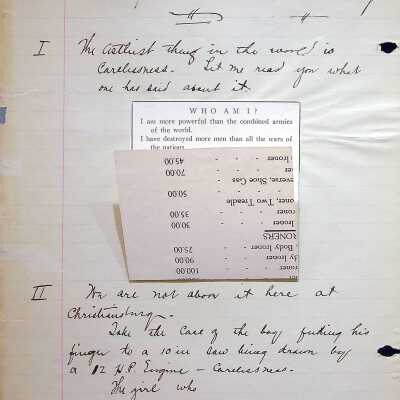 I The costliest thing in the world is
Carelessness. Let me read you what
one has said about it.
WHO AM I?
I am more powerful than the combined armies
of the world.
I have destroyed more men than all the wars of
the nations
100.00
dy Ironer - - 90.00
Body Ironer - - 75.00
RONERS
Ironer - - 30.00
roner - - 35.00
oner, Two Treadle
- - - 50.00
everse, Shoe Gas
er - - - 70.00
Ironer - - 45.00
II We are not above it here at
Christiansburg.
Take the case of the boy his
finger to a 10 in saw being drawn by
a 12 H.P. Engine — Carelessness.
The girl who